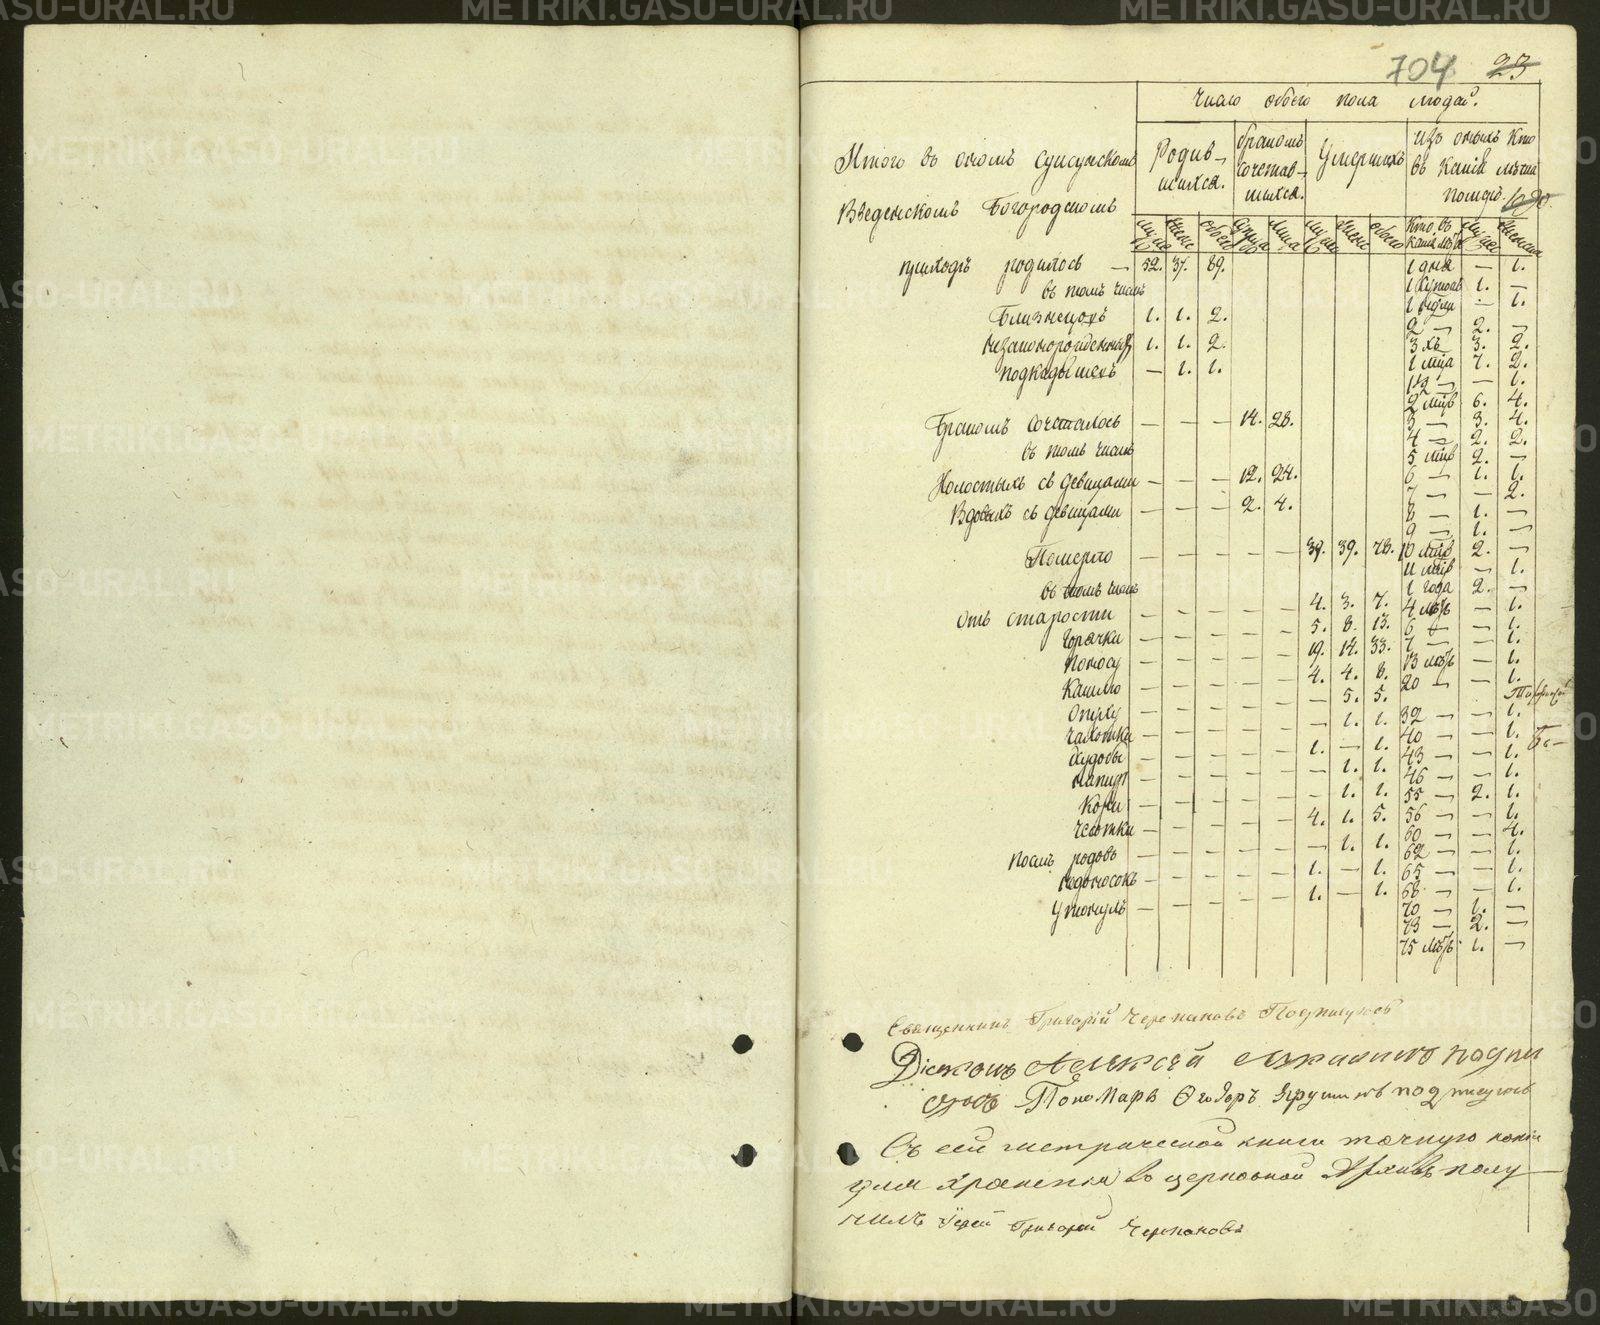 704 23
Число обоего пола людей.
Итого въ ономъ Сунсунскомъ
Введенскомъ Богородскомъ
Родив-
шихся.
бракомъ
сочетав-
шихся.
Умершихъ
изъ оныхъ Кто
въ какія лѣта
померъ.
приходѣ родилось — 52. 37. 89. 1 дня — 1.
въ томъ числѣ 1. —
Близнецовъ 1. 1. 2. — 1.
незаконорожденныхъ 1. 1. 2. 2 — 2. —
3 хъ 3. 2.
подкидышевъ — 1. 1. 1 мца 7. 2.
1½ — — 1.
2 мцв 6. 4.
Бракомъ сочеталось — — — 14. 28. 3 — 3. 4.
4 — 2. 2.
въ томъ числѣ 5 мцв 2. —
Холостыхъ съ девицами — — — 12. 24. 6 — 1. 1.
7 — — 2.
Вдовыхъ съ девицами — — — 2. 4. 8 — 1. —
9 — 1. —
Померло — — — — — 39. 39. 78. 10 мцв 2. —
11 мцв — 1.
въ томъ числѣ 1 года 2. —
отъ старости — — — — — 4. 3. 7. 4 лѣтъ — 1.
горячки — — — — — 5. 8. 13. 6 — — 1.
поносу — — — — — 19. 14. 33. 7 — — 1.
13 лѣтъ — 1.
Кашлю — — — — — 4. 4. 8. 20 — — 1.
Опуху — — — — — — 5. 5. 32 — — 1.
чахотки — — — — — — 1. 1. 40 — — 1.
худобы — — — — — 1. — 1. 43 — — 1.
— — — — — — 1. 1. 46 — — 1.
Кори — — — — — — 1. 1. 55 — 2. 1.
чесотки — — — — — 4. 1. 5. 56 — — 1.
60 — — 4.
послѣ родовъ — — — — — — 1. 1. 62 — — 1.
недоносокъ — — — — — 1. — 1. 65 — — 1.
68 — — 1.
Утонулъ — — — — — 1. — 1. 70 — 1. —
73 — 2. —
75 лѣтъ 1. —
Священникъ Григорій Черепановъ Подписуюсь
Діаконъ Алексѣй подпи
суюсь Пономарь Ѳеодоръ подписуюсь
Съ сей метрической книги точную копію
для храненія въ церковной Архивѣ полу—
чилъ Іерей Григорій Черепановъ
METRIKI.GASO-URAL.RU